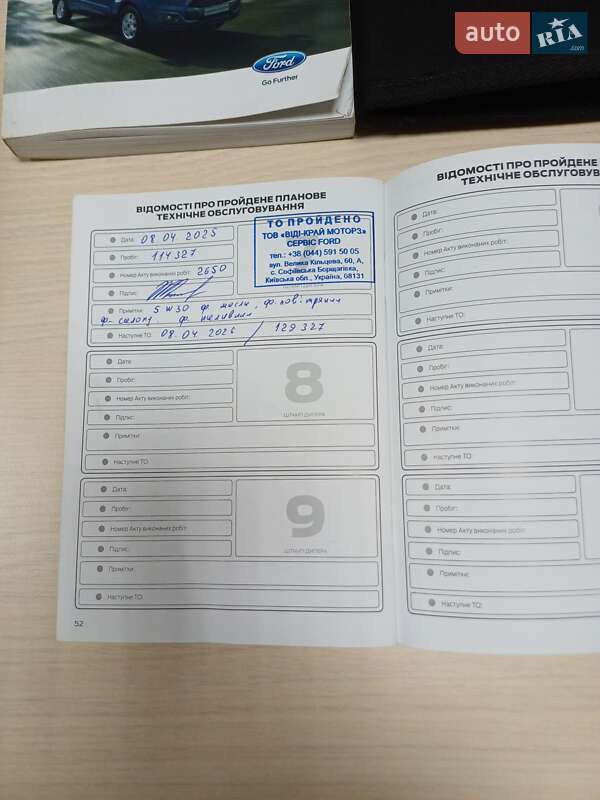 auto RIA .com
Ford
Go Further
ВІДОМОСТІ ПРО ПРОЙДЕНЕ ПЛАНОВЕ
ТЕХНІЧНЕ ОБСЛУГОВУВАННЯ
Дата: 08 04 2025
Пробіг: 114 327
Номер Акту виконаних робіт: 2650
Підпис:
Примітки: 5 W 30 ф. масли, ф. повітряни
ф-салону ф. паливний
Наступне ТО: 08. 04. 2026 / 129 327
ТО ПРОЙДЕНО
ТОВ «ВІДІ-КРАЙ МОТОРЗ»
СЕРВІС FORD
тел.: +38 (044) 591 50 05
вул. Велика Кільцева, 60, А,
с. Софіївська Борщагівка,
Київська обл., Україна, 08131
Дата:
Пробіг:
Номер Акту виконаних робіт:
Підпис:
Примітки:
Наступне ТО:
8
ШТАМП ДИЛЕРА
Дата:
Пробіг:
Номер Акту виконаних робіт:
Підпис:
Примітки:
Наступне ТО:
9
ШТАМП ДИЛЕРА
52
ВІДОМОСТІ ПРО ПРОЙДЕНЕ
ТЕХНІЧНЕ ОБСЛУГОВУВ
Дата:
Пробіг:
Номер Акту виконаних робіт:
Підпис:
Примітки:
Наступне ТО:
Дата:
Пробіг:
Номер Акту виконаних робіт:
Підпис:
Примітки:
Наступне ТО:
Дата:
Пробіг:
Номер Акту виконаних робіт:
Підпис:
Примітки:
Наступне ТО: